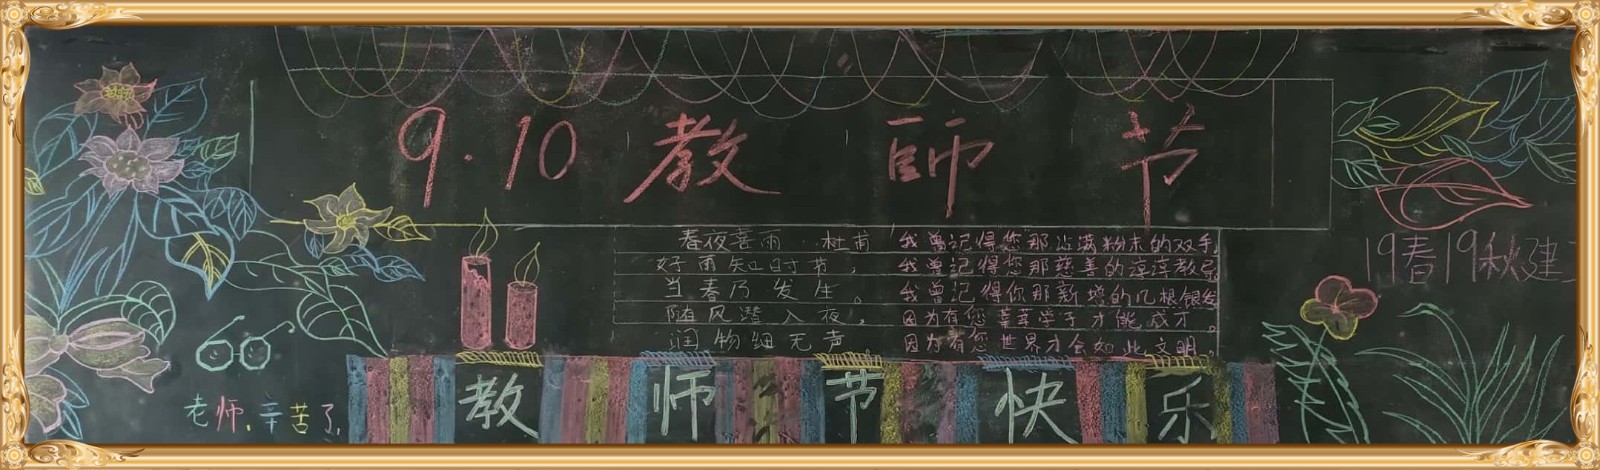 9.10 教師节
春夜喜雨 杜甫
好雨知时节，
当春乃发生。
随风潜入夜，
润物细无声
我曾记得您那沾满粉末的双手
我曾记得您那慈善的谆谆教导
我曾记得你那新增的几根银发
因为有您莘莘学子才能成才。
因为有您世界才会如此文明。
19春19秋建
老师，辛苦了
教师节快乐